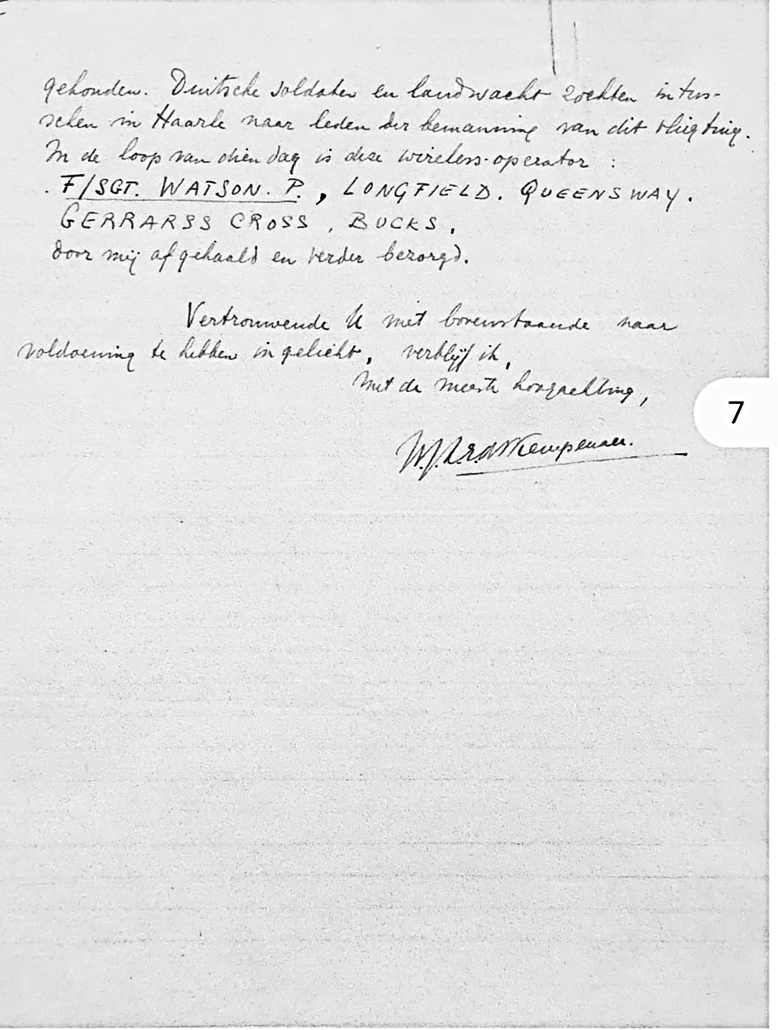 gehouden. Duitsche soldaten en landwacht zochten intus-
schen in Haarle naar leden der bemanning van dit vliegtuig.
In de loop van dien dag is deze wireless-operator :
. F/SGT. WATSON. P., LONGFIELD. QUEENSWAY.
GERRARSS CROSS, BUCKS,
door mij afgehaald en verder bezorgd.
Vertrouwende U met bovenstaande naar
voldoening te hebben ingelicht, verblijf ik,
met de meeste hoogachting,
7